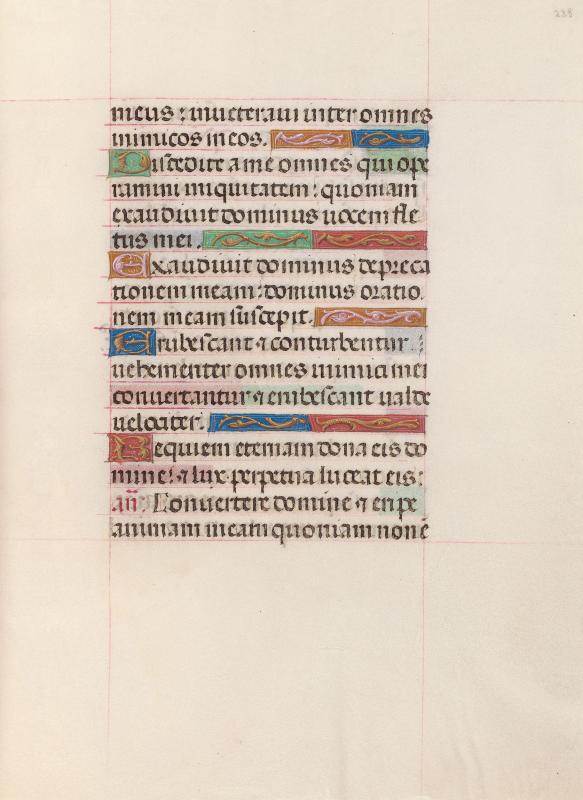 238
meus: inueteraui inter omnes
inimicos meos.
Discedite a me omnes qui ope
ramini iniquitatem: quoniam
exaudiuit dominus uocem fle
tus mei.
Exaudiuit dominus depreca
tionem meam: dominus oratio
nem meam suscepit.
Erubescant ⁊ conturbentur
uehementer omnes inimici mei
conuertantur ⁊ erubescant ualde
uelociter.
Requiem eternam dona eis do
mine: ⁊ lux perpetua luceat eis:
an̄. Conuertere domine ⁊ eripe
animam meam quoniam non ē